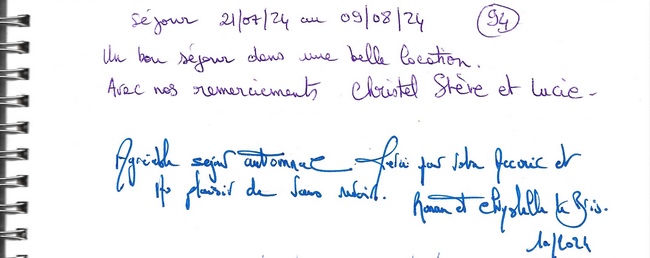 Séjour 21/07/24 au 09/08/24 94
Un bon séjour dans une belle location.
Avec nos remerciements Christel Stève et Lucie -
Agréable sejour automnal. Merci pour votre accueil et
plaisir de vous revoir. Ronan et Chrystelle Le Bris.
10/2024